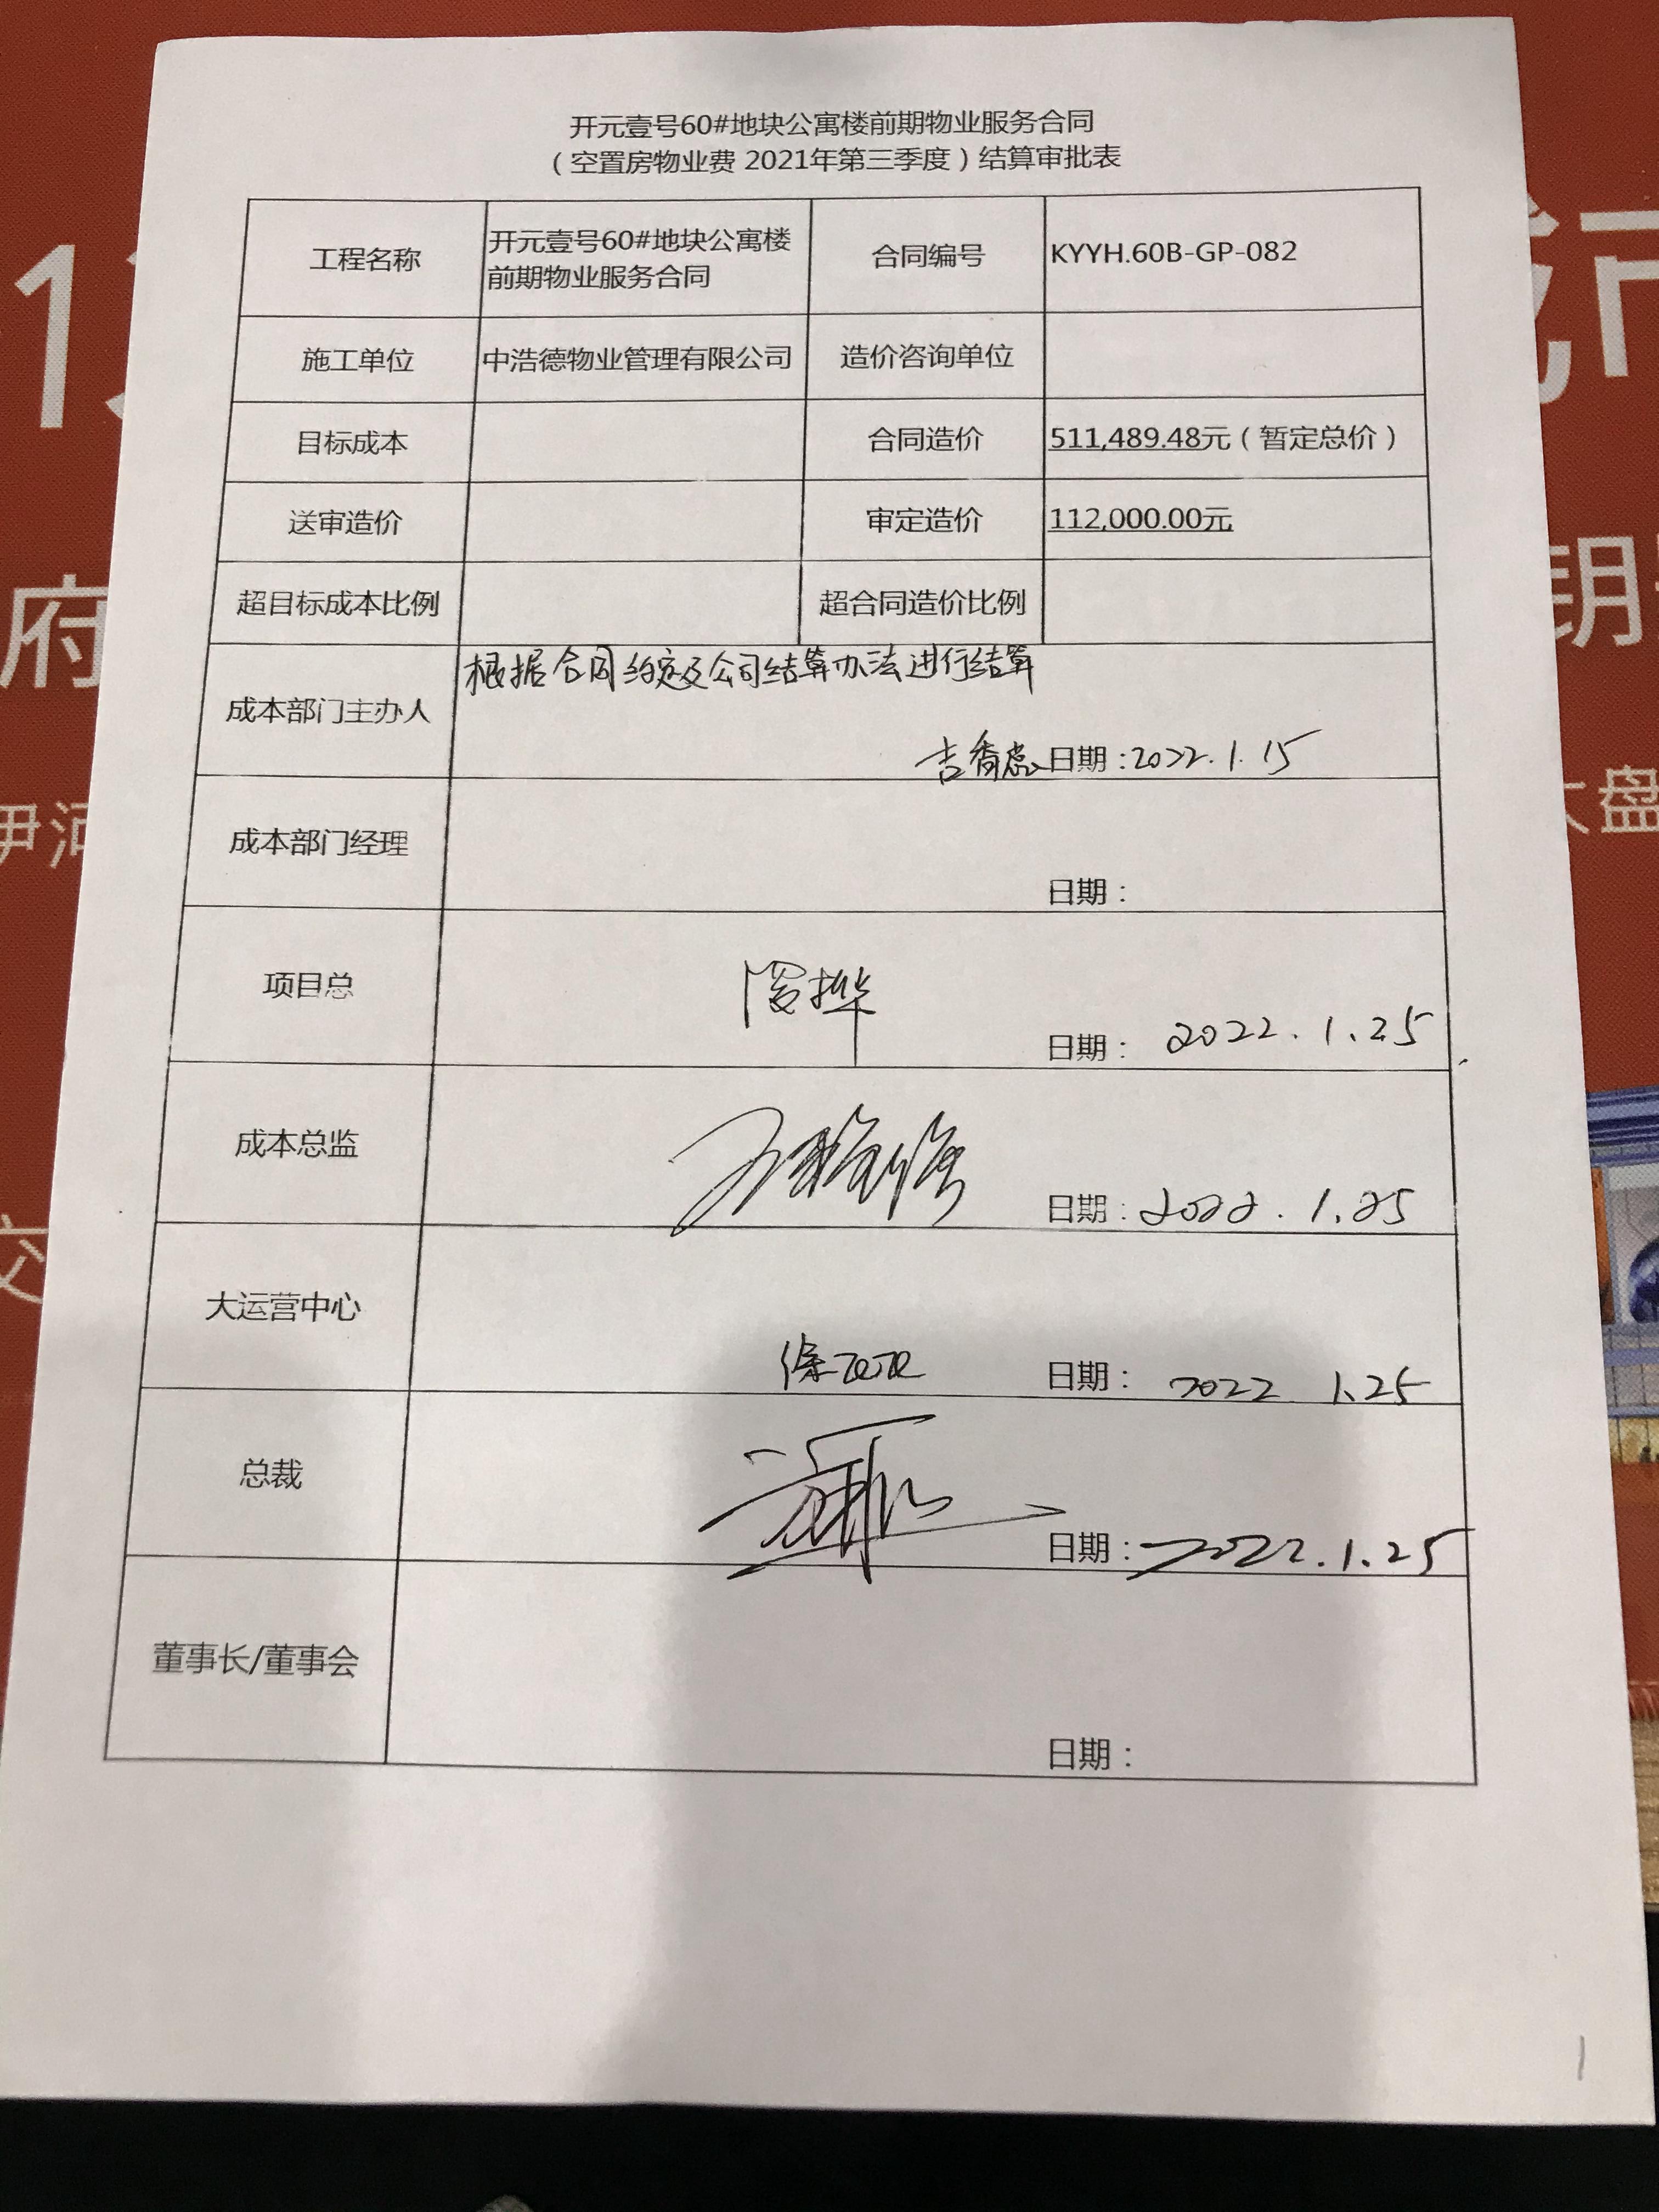 开元壹号60#地块公寓楼前期物业服务合同
（空置房物业费 2021年第三季度）结算审批表
工程名称
开元壹号60#地块公寓楼
前期物业服务合同
合同编号
KYYH.60B-GP-082
施工单位
中浩德物业管理有限公司
造价咨询单位
目标成本
合同造价
511,489.48元（暂定总价）
送审造价
审定造价
112,000.00元
超目标成本比例
超合同造价比例
成本部门主办人
根据合同约定及公司结算办法进行结算
日期：2022.1.15
成本部门经理
日期：
项目总
日期： 2022.1.25
成本总监
日期：2022.1.25
大运营中心
日期： 2022 1.25
总裁
日期：2022.1.25
董事长/董事会
日期：
1
府
伊河
交
钥
大盘